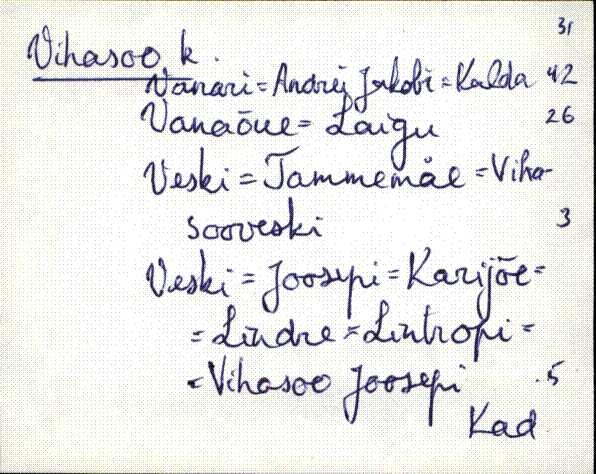 31
Vihasoo k.
Vanari = Andrei Jakobi = Kalda 42
Vanaõue = Laigu 26
Veski = Tammemäe = Viha-
sooveski 3
Veski = Joosepi = Karijõe =
= Lindre = Lintropi =
= Vihasoo Joosepi 5
Kad